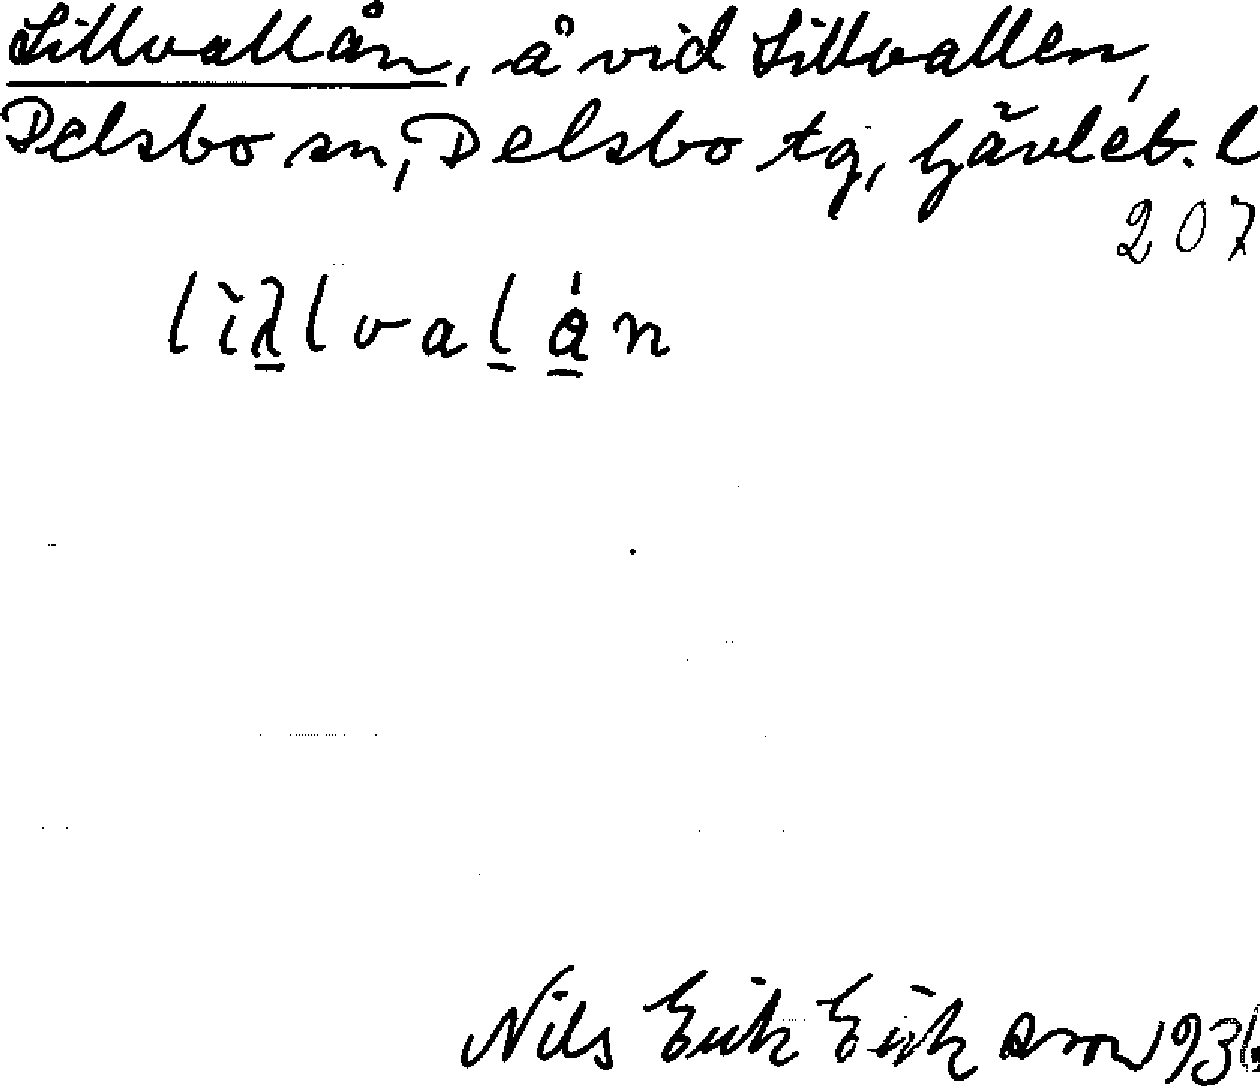 Lillvallån, å vid Lillvallen,
Delsbo sn, Delsbo tg, Gävleb. l
207
lìλlvalán
Nils Erik Erikson 1936